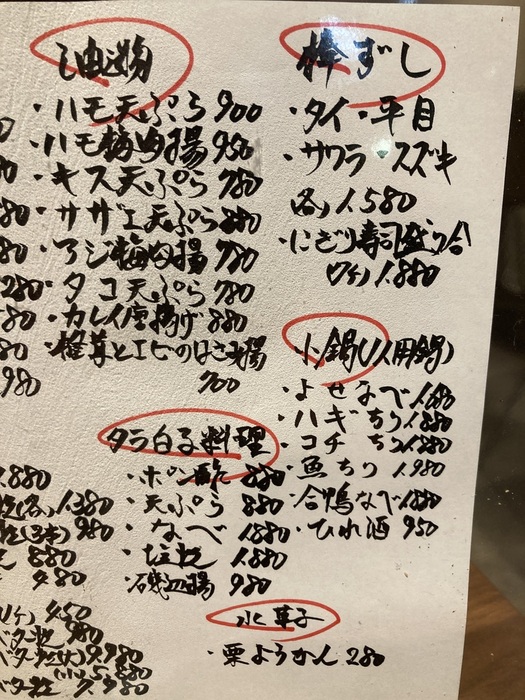 油物
・ハモ天ぷら 900
・ハモ梅肉揚 950
・キス天ぷら 780
・サザエ天ぷら 880
・アジ梅肉揚 780
・タコ天ぷら 780
・カレイ唐揚げ 880
・椎茸とエビのはさみ揚
700
タラ白子料理
・ポン酢 880
・天ぷら 880
・なべ 1.880
・塩焼 1.880
・磯辺揚 980
棒ずし
・タイ・平目
・サワラ・スズキ
各) 1.580
・にぎり寿司盛り合
1.880
小鍋(1人用鍋)
・よせなべ
・ハギちり 1.880
・コチちり 1.880
・魚ちり 1.980
・合鴨なべ 1.880
・ひれ酒 950
水菓子
・栗ようかん 280
1.880
1.380
980
880
980